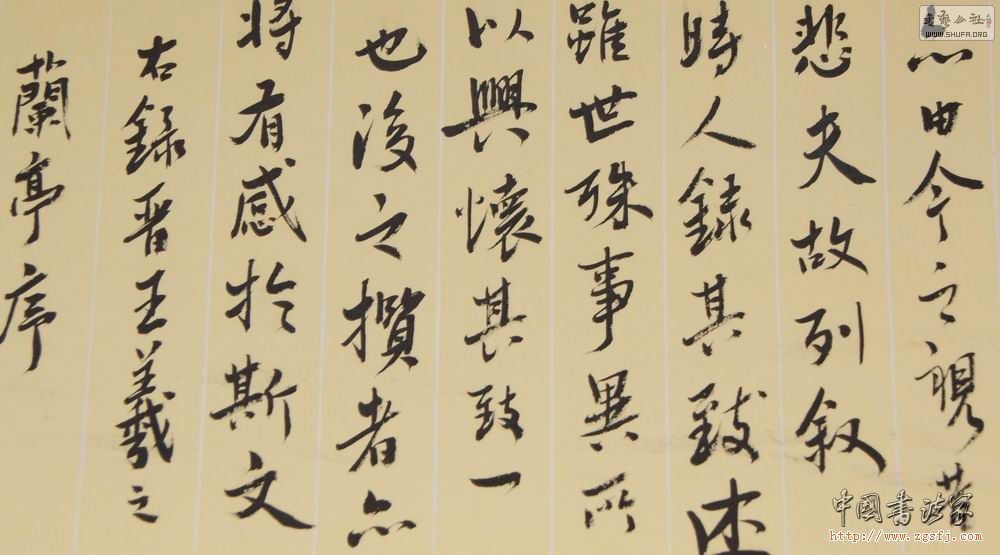 亦由今之視昔
悲夫故列叙
時人録其致述
雖世殊事異所
以興懷其致一
也後之攬者亦
将有感於斯文
右録晋王羲之
蘭亭序
书艺公社
WWW.SHUFA.ORG
中國书法家
http://www.zgsfj.com